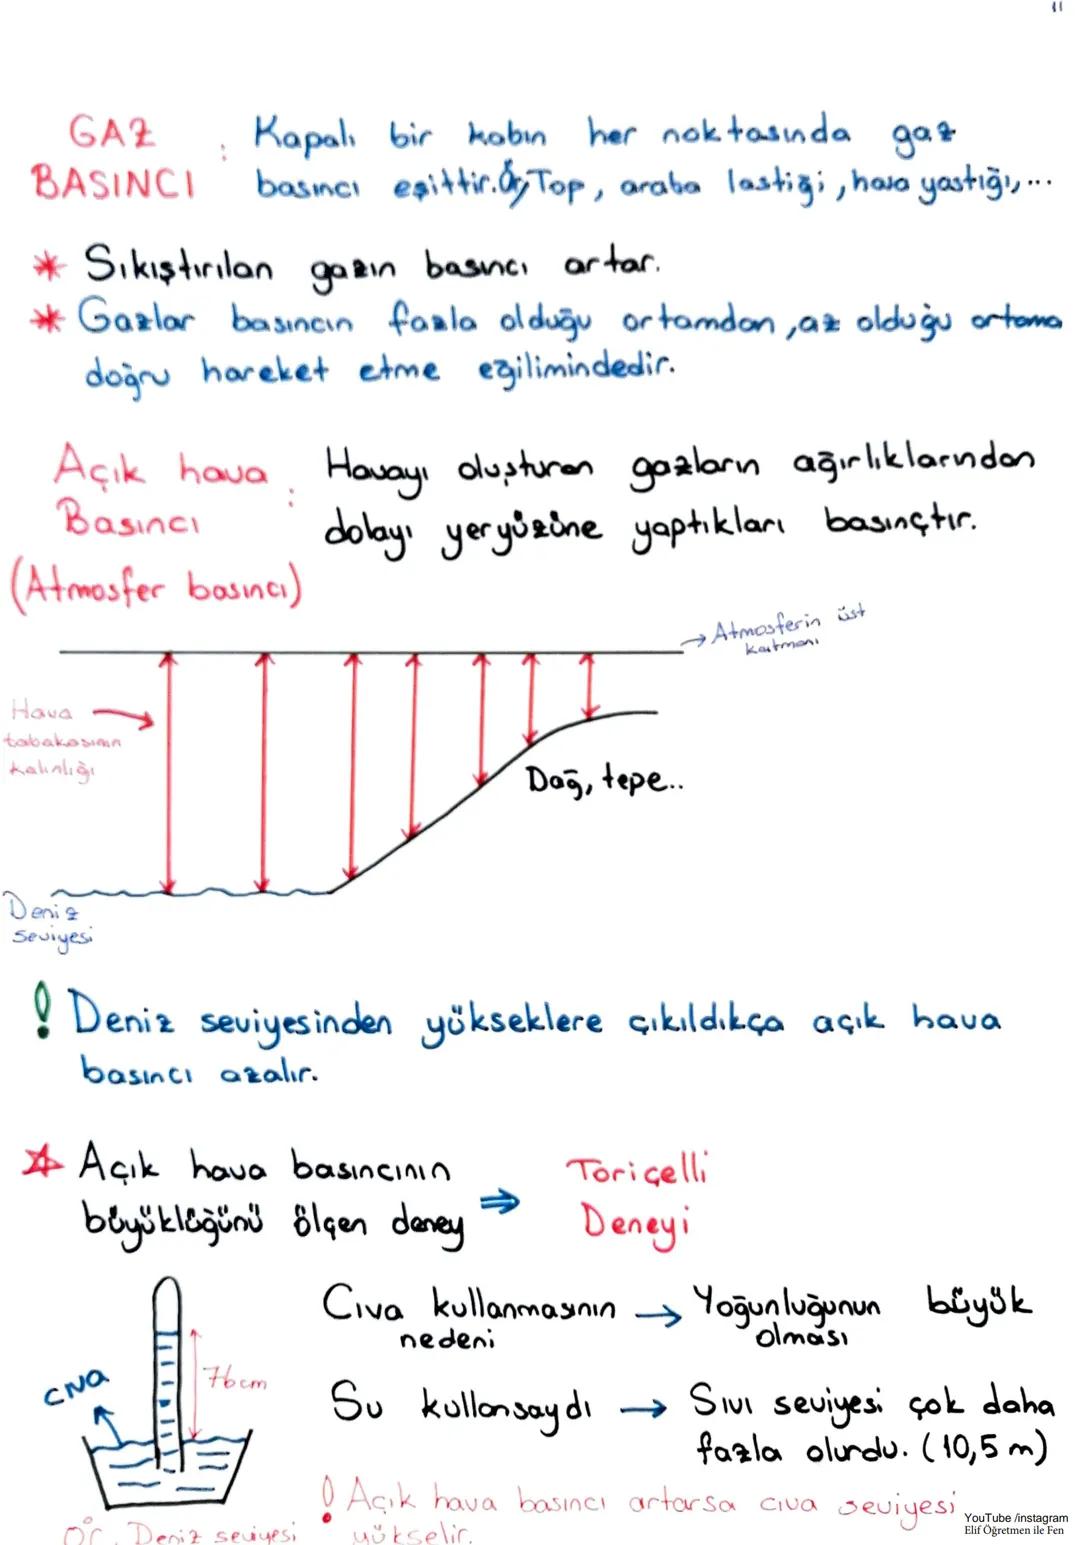 11
GAZ BASINCI : Kapalı bir kabın her noktasında gaz
basıncı eşittir. Ör/ Top, araba lastiği, hava yastığı, ...
* Sıkıştırılan gazın basıncı artar.
* Gazlar basıncın fazla olduğu ortamdan, az olduğu ortama
doğru hareket etme eğilimindedir.
Açık hava Basıncı (Atmosfer basıncı) : Havayı oluşturan gazların ağırlıklarından
dolayı yeryüzüne yaptıkları basınçtır.
→ Atmosferin üst
katmanı
Hava
tabakasının
kalınlığı
Dağ, tepe..
Deniz
seviyesi
! Deniz seviyesinden yükseklere çıkıldıkça açık hava
basıncı azalır.
* Açık hava basıncının
büyüklüğünü ölçen deney ⇒ Toriçelli
Deneyi
Cıva kullanmasının nedeni → Yoğunluğunun büyük
olması
CIVA
76 cm
Su kullansaydı → Sıvı seviyesi çok daha
fazla olurdu. (10,5 m)
! Açık hava basıncı artarsa cıva seviyesi
yükselir.
0°C, Deniz seviyesi
YouTube /instagram
Elif Öğretmen ile Fen